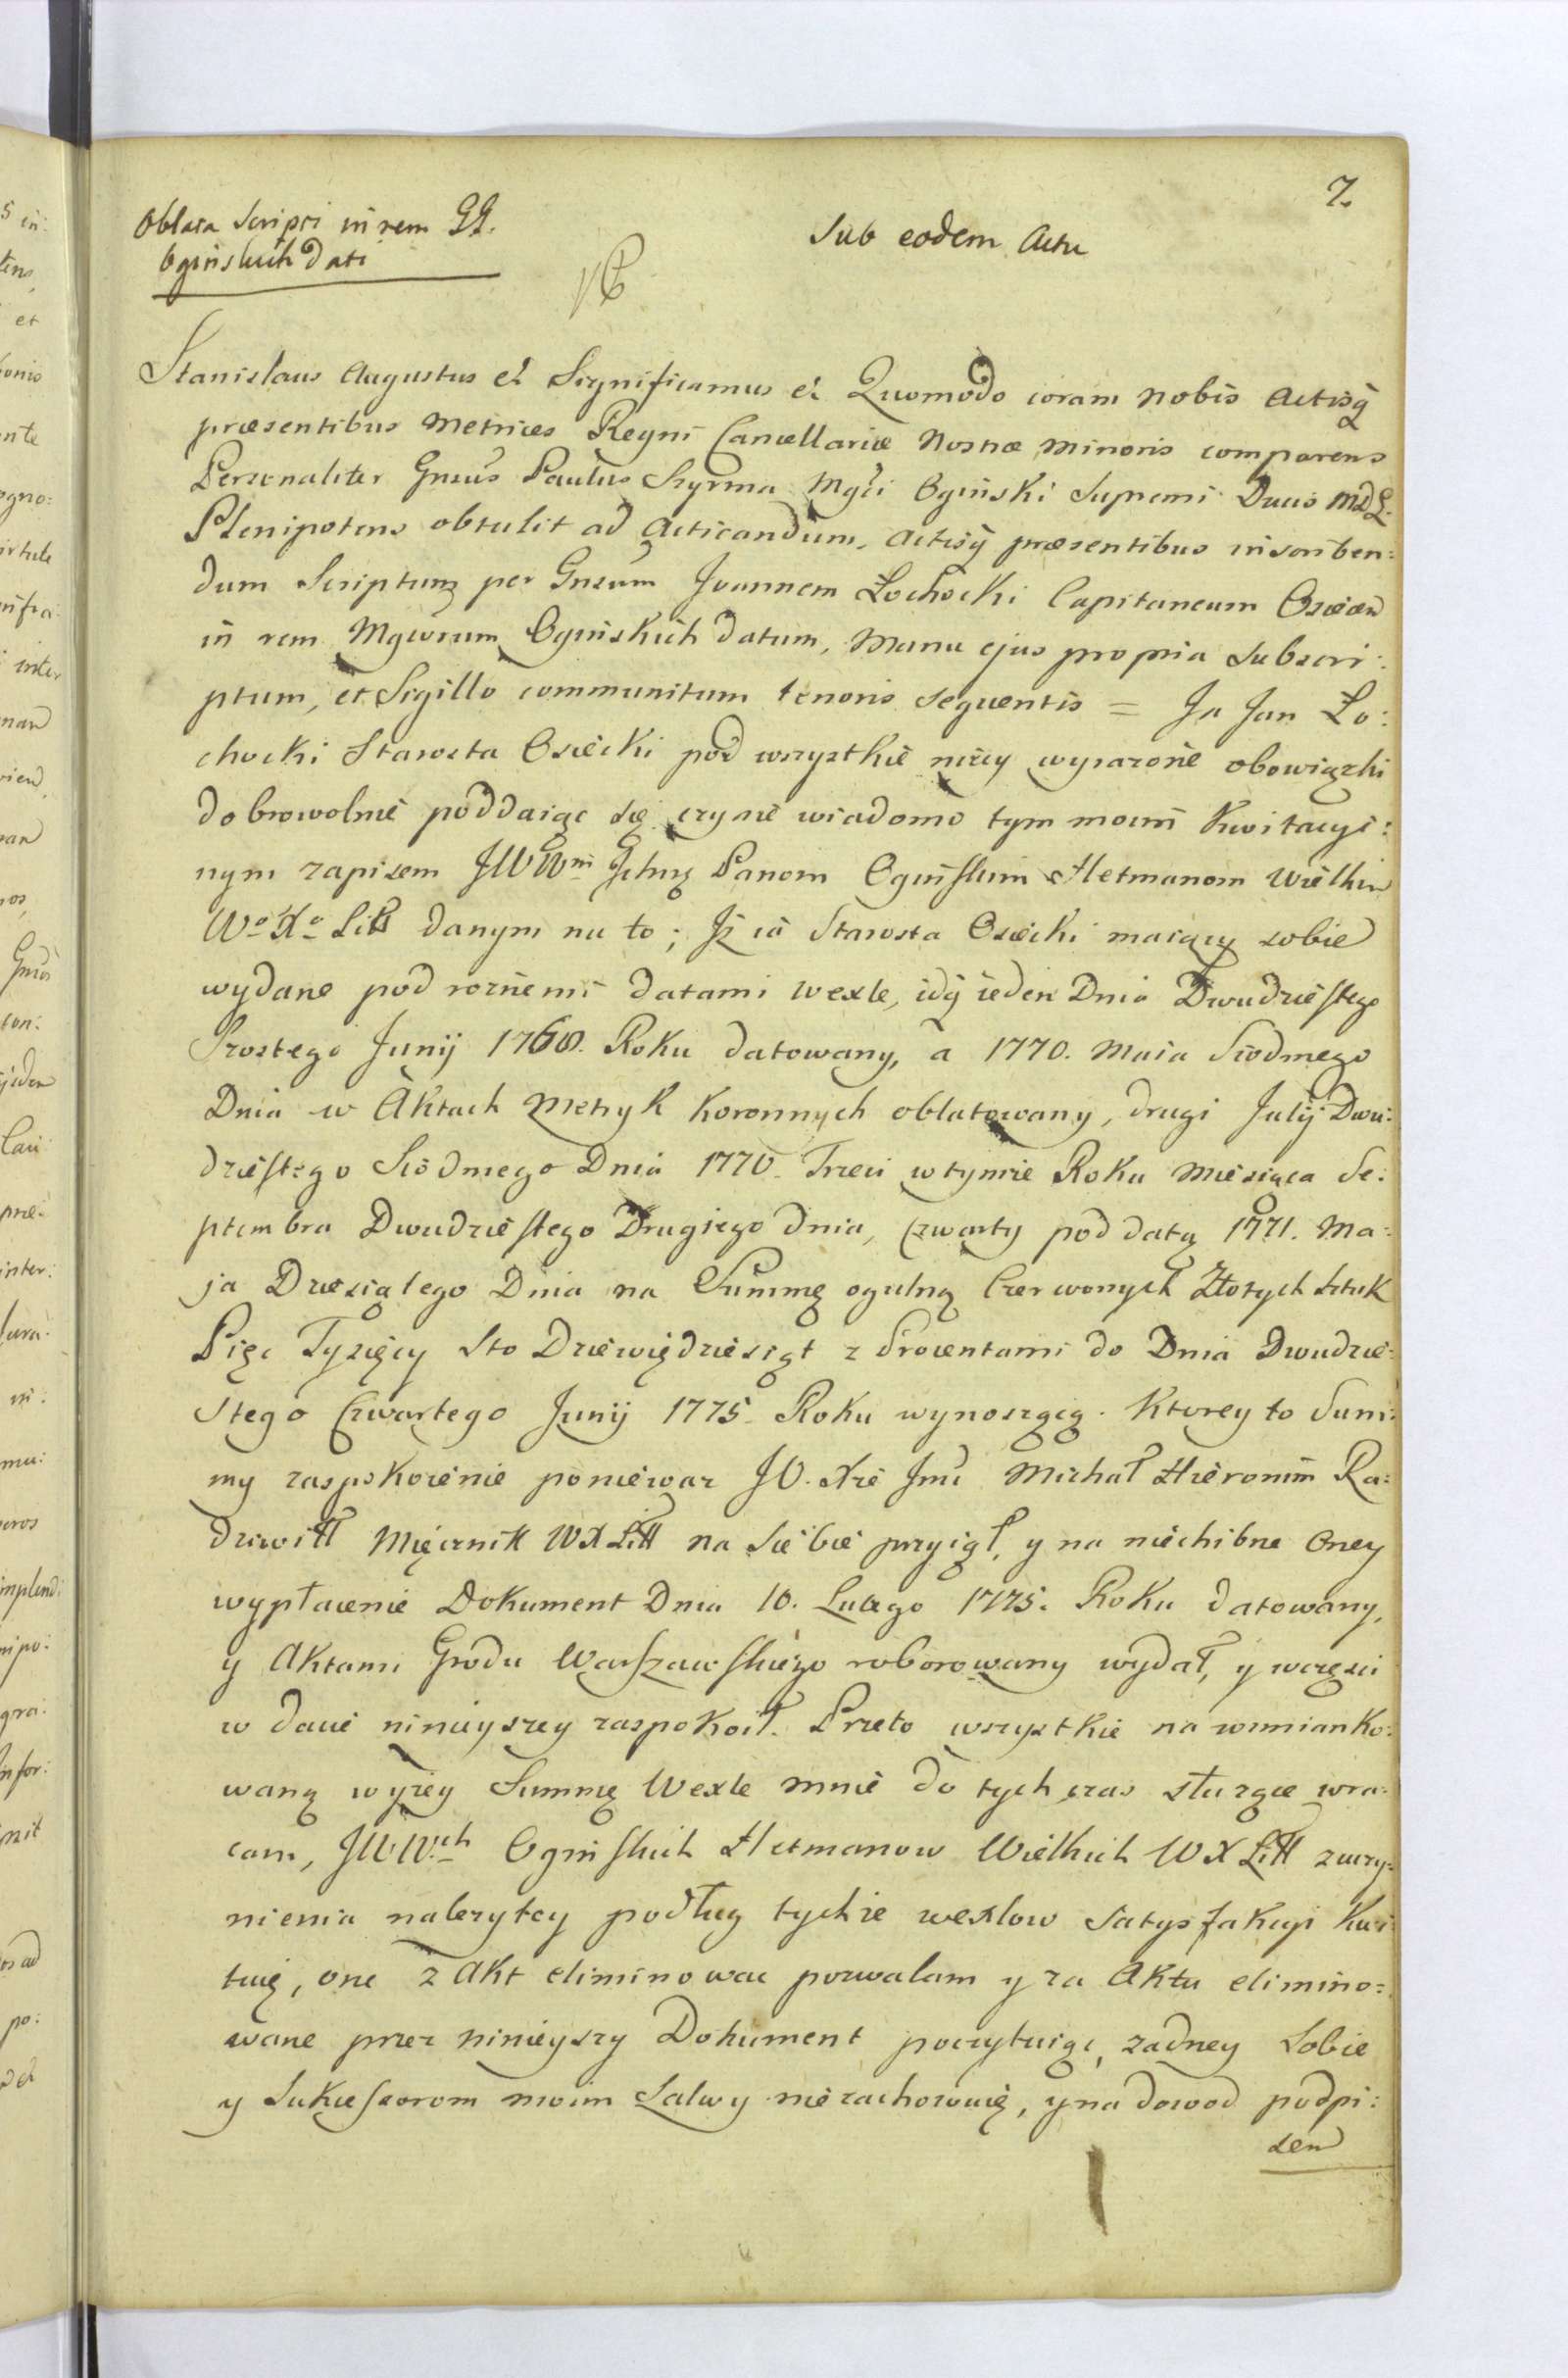 7.
Oblata Scripti in rem GG.
Oginskich Dati
Sub eodem Actu
Stanislaus Augustus et Significamus et Quomodo coram Nobis Actisq
præsentibus Metrices Regni Cancellariæ Nostræ Minoris comparens
Personaliter Gnsus Paulus Szyrma Mgci Oginski Supremi Ducis MDL.
Plenipotens obtulit ad Acticandum, Actisq præsentibus inscriben:
dum Scriptum per Gnsum Joannem Łochocki Capitaneum Osiecen
in rem Mgcorum Oginskich datum, Manu ejus propria Subscri:
ptum, et Sigillo communitum tenoris sequentis = Ja Jan Ło:
chocki Starosta Osiecki pod wszystkie niżey wyrażone obowiązki
dobrowolnie poddaiąc się czynie wiadomo tym moim Kwitacyi:
nym zapisem JWWm Ichmę Panom Oginskim Hetmanom Wielkim
Wo Xo Litt danym na to; Iż ia Starosta Osiecki maiący sobie
wydane pod roznemi datami Wexle, idq ieden Dnia Dwudziestego
Szostego Junij 1768. Roku datowany, a 1770. Maia Siodmego
Dnia w Aktach Metryk Koronnych oblatowany, drugi Julij Dwu:
dziestego Siodmego Dnia 1770. Trzeci w tymże Roku Miesiąca Se:
ptembra Dwudziestego Drugiego dnia, Czwarty pod datą 1771. Ma:
ja Dziesiątego Dnia na Summę ogulną Czerwonych Złotych sztuk
Pięc Tysięcy Sto Dziewiędziesiąt z Procentami do Dnia Dwudzie:
Stego Czwartego Junij 1775. Roku wynoszącą. Ktorey to Sum:
my zaspokoienie ponieważ JO. Xże Jmć Michał Hieronim Ra:
dziwiłł Miecznik WXLitt na Siebie przyiął, y na niechibne Oney
wypłacenie Dokument Dnia 10. Lutego 1775. Roku datowany,
y Aktami Grodu Warszawskiego roborowany wydał, y w częsci
w dacie ninieyszey zaspokoił. Przeto wszystkie na wzmianko:
waną wyżey Summę Wexle mnie do tych czas służące wra:
cam, JWWch Oginskich Hetmanow Wielkich WXLitt z uczy:
nienia należytey podług tychże wexlow Satysfakcyi Kwi
tuię, one z Akt eliminowac pozwalam y za Akta elimino:
wane przez ninieyszy Dokument poczytuiąc, zadney Sobie
y Sukcessorom moim Salwy nie zachowuię, y na dowod podpi:
sem